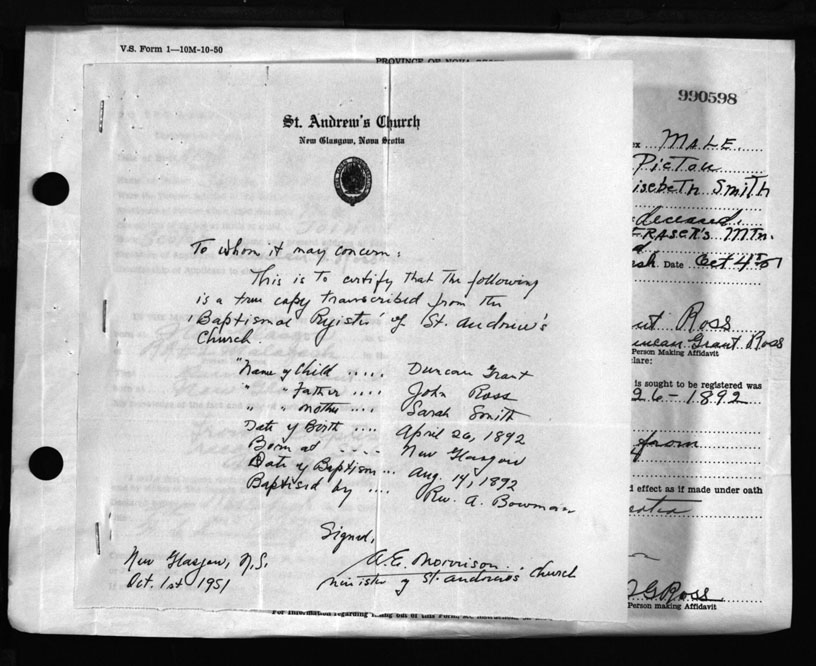 V.S. Form 1—10M-10-50
PROVINCE OF NOVA
990598
St. Andrew's Church
New Glasgow, Nova Scotia
To whom it may concern:
This is to certify that the following
is a true copy transcribed from the
'Baptismal Register' of St. Andrew's
Church.
"Name of Child ..... Duncan Grant
" " Father .... John Ross
" " Mother .... Sarah Smith
Date of Birth .... April 26, 1892
Born at .... New Glasgow
Date of Baptism ... Aug. 14, 1892
Baptised by .... Rev. A. Bowman
Signed,
A.E. Morrison.
Minister of St. Andrew's Church
New Glasgow, N.S.
Oct. 1st 1951
MALE
Pictou
Smith
deceased
FRASER'S Mtn.
Date Oct 4
Ross
Grant Ross
Person Making Affidavit
lare:
is sought to be registered was
26-1892
from
effect as if made under oath
Ross
Person making Affidavit
For information regarding filling out of this Form, see